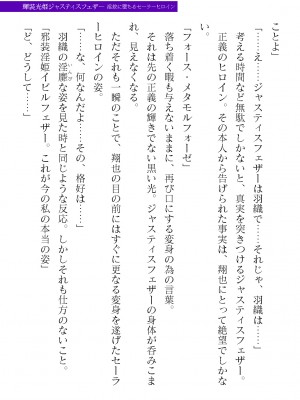 輝装光姫ジャスティスフェザー 淫欲に堕ちるセーラーヒロイン
ことよ」
「……え……ジャスティスフェザーは羽織で……それじゃ、羽織は……」
考える時間など無駄でしかないと、真実を突きつけるジャスティスフェザー。
正義のヒロイン。その本人から告げられた事実は、翔也にとって絶望でしかな
い。
「フォース・メタモルフォーゼ」
落ち着く暇も与えないままに、再び口にする変身の為の言葉。
それは先の正義の輝きでない黒い光。ジャスティスフェザーの身体が呑みこま
れ、見えなくなる。
ただそれも一瞬のことで、翔也の目の前にはすぐに更なる変身を遂げたセーラ
ーヒロインの姿。
「……な、何なんだよ……その、格好は……」
羽織の淫靡な姿を見た時と同じような反応。しかしそれも仕方のないこと。
「邪装淫姫イビルフェザー。これが今の私の本当の姿」
「ど、どうして……」